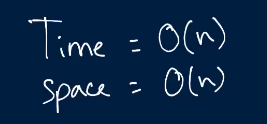 Time = O(n)
space = O(n)